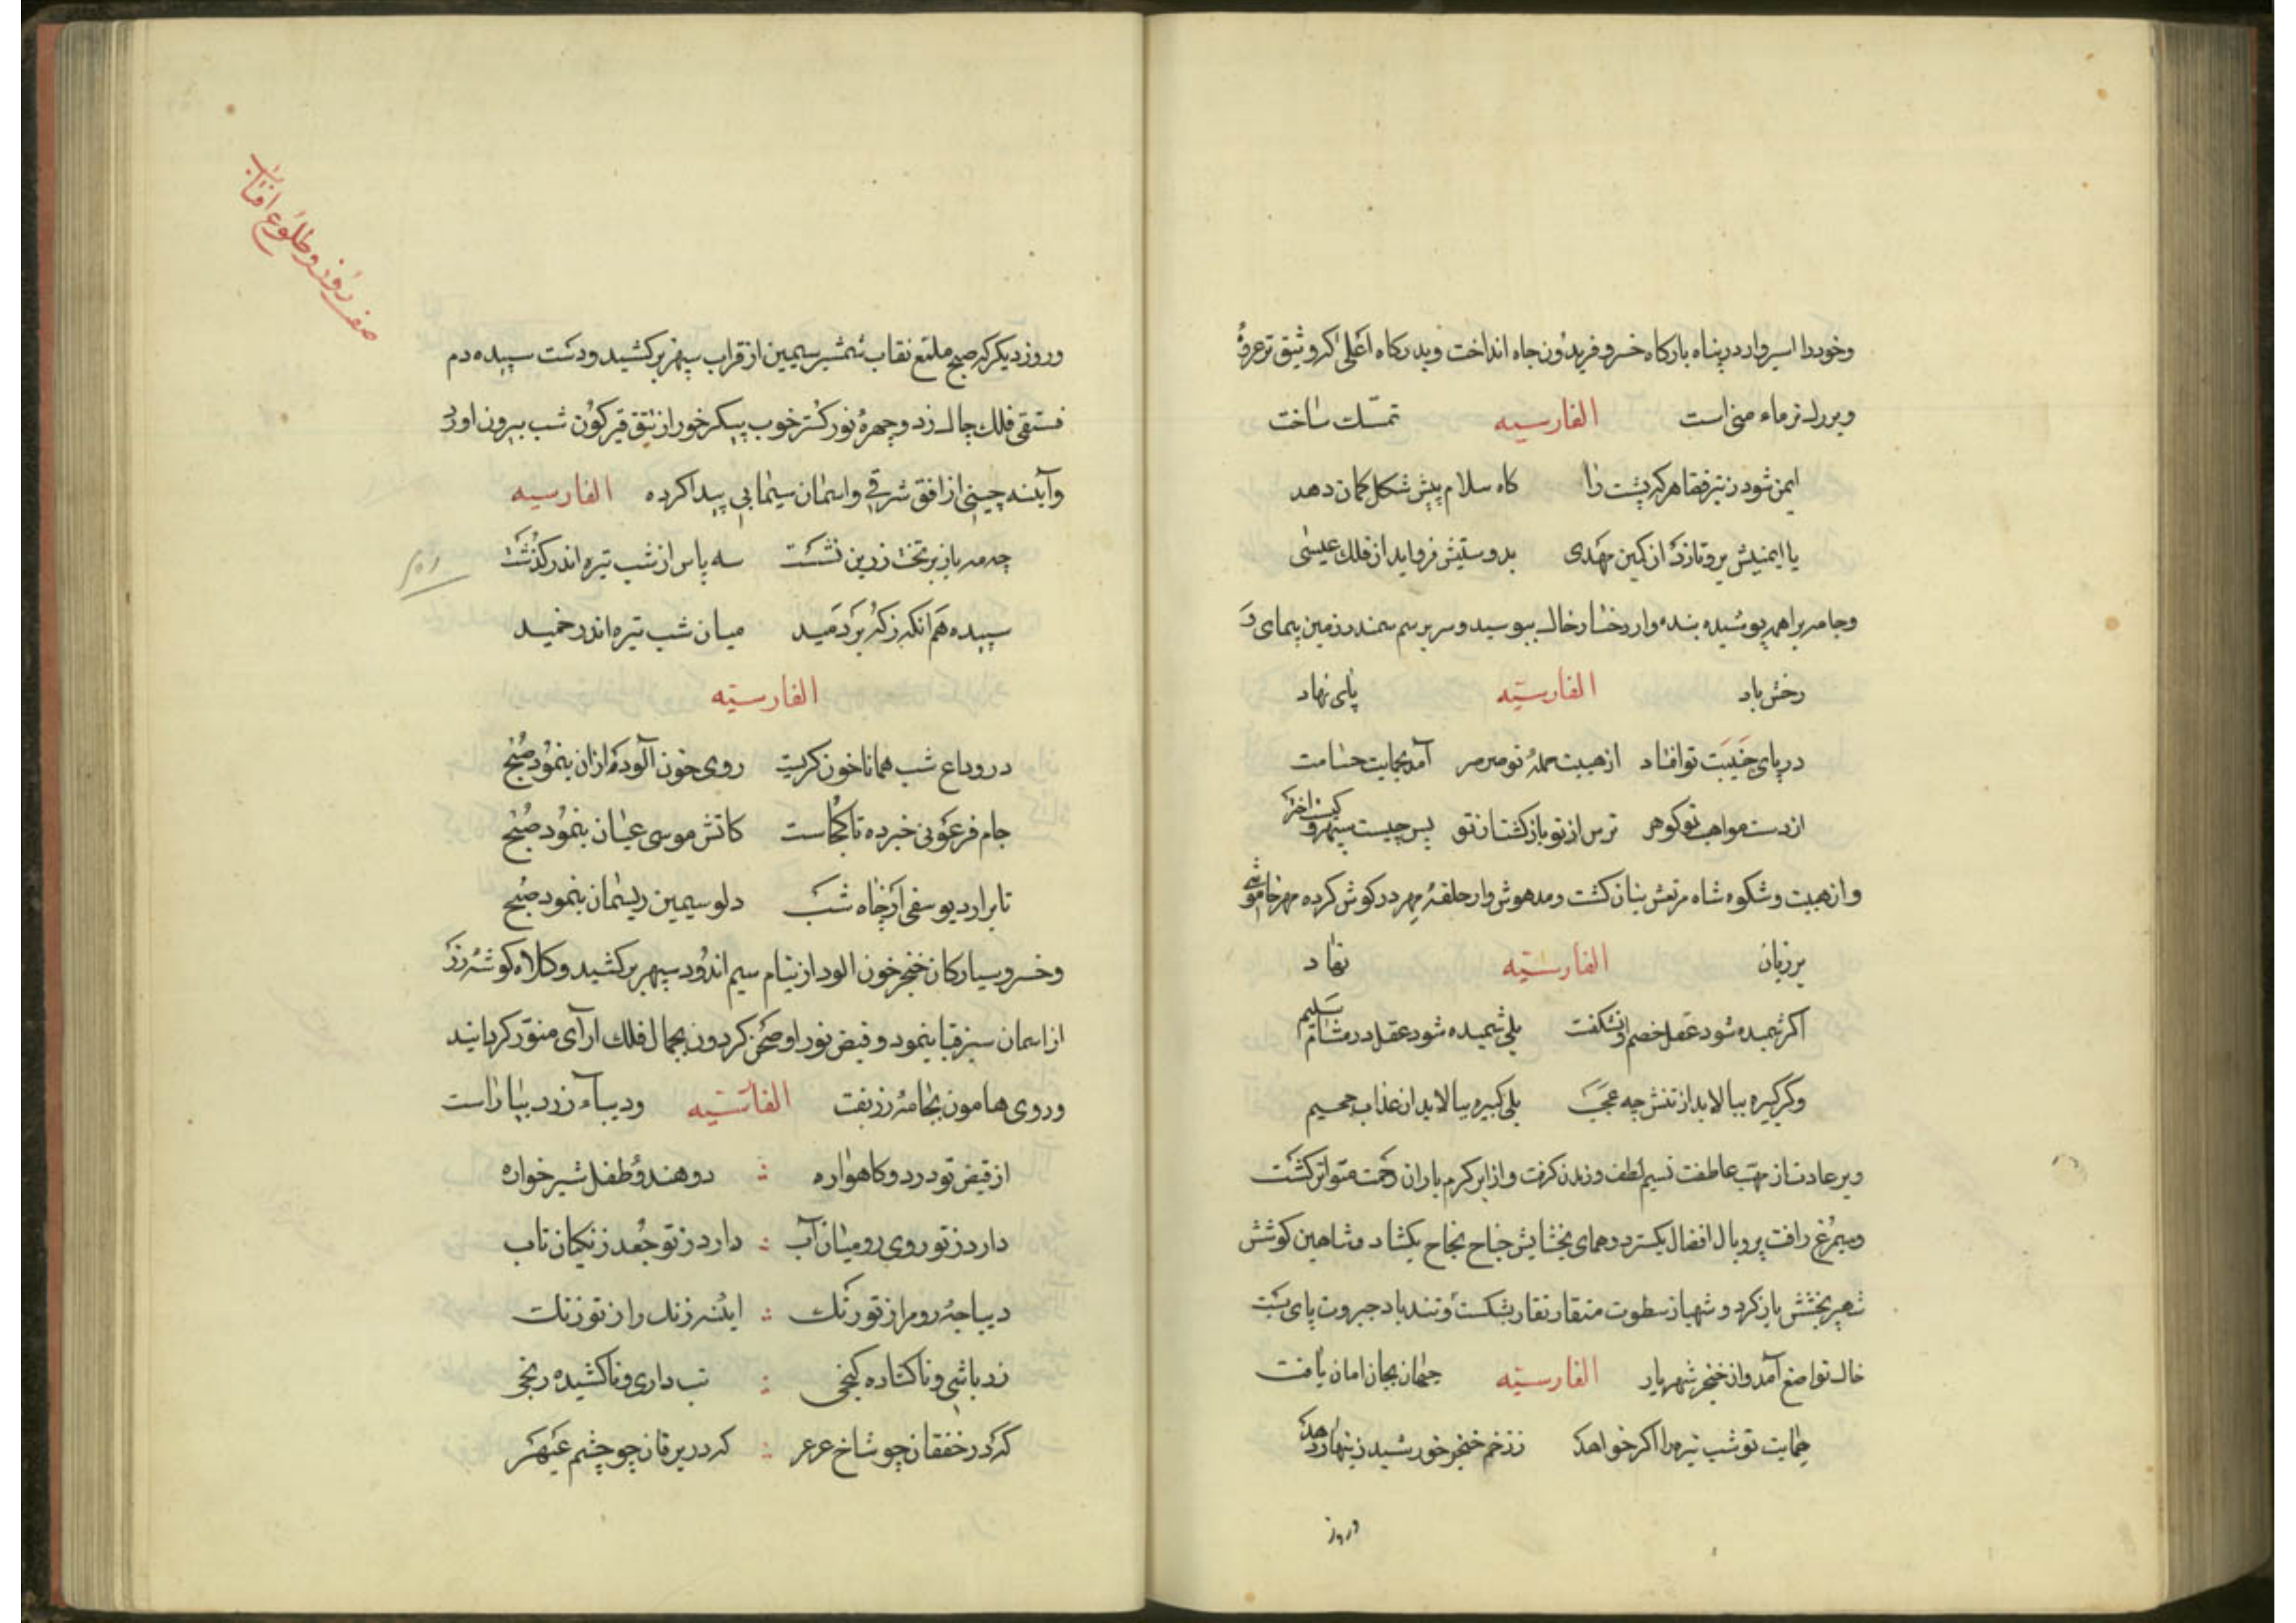 وخودرا اسیروار در پناه بارکاه خسرو فریدون جاه انداخت وبدرکاه اعلی که وثیق تر عروهٔ
است الفارسیه تمسّک ساخت
ایمن شود ز تیر قضا هرکه پشت را کاه سلام پیش شکل کمان دهد
یا ایمنیش برو تازد از کین مهدی بدوستیش فرو اید از فلک عیسی
وجامه براهم پوشیده بنده وار رخسار خاک ببوسید وسر بر سم سمند زمین پیمای و
رخش باد الفارسیّه پای نهاد
در پای جنیبت تو افتاد از هیبت حمله تو صرصر آمد بحمایت حسامت
از دست مواهب تو کوهر ترس از تو باز کشت از تو پس چیست سپهر و کیست اختر
واز هیبت وشکوه شاه مرتعش بنان کشت ومدهوش وار حلقه مهر در کوش کرده مهر خاموشی
بر زبان الفارسیّه نهاد
اکر شمیده شود عقل خصم او نشکفت بلی شمیده شود عقل در مشام سلیم
وکر کبیره ببالاید از تنش چه عجب بلی کبیره ببالاید از عذاب جحیم
وبر عادت از مهب عاطفت نسیم لطف وزیدن کرفت واز ابر کرم باران رحمت متواتر کشت
وسیمرغ رافت پر وبال افضال بکسترد وهمای بخشایش جناح نجاح بکشاد وشاهین کوشش
شهپر بخشش باز کرد وشهباز سطوت منقار نقار بشکست وتند باد جبروت پای بست
خاک تواضع آمد واز خنجر شهریار الفارسیّه جهان بجان امان یافت
حمایت تو شب تیره را اکر خواهد ز زخم خنجر خورشید زینهار دهد
وروز
صفت روز وطلوع افتاب
وروز دیکر که صبح ملمع نقاب شمشیر سیمین از قراب سپهر برکشید ودست سپیده دم
فستقی فلک چاک زد وچهرهٔ نور کستر خوب پیکر خور از تتق قیرکون شب بیرون اورد
وآینه چینی از افق شرقی واسمان سیمابی پیدا کرده الفارسیه
چه مه باز بر تخت زرین نشست سه پاس از شب تیره اندر کذشت
سپیده هم آنکه زکه بردمید میان شب تیره اندر خمید
الفارسیّه
در وداع شب همانا خون کریست روی خون آلوده ازان بنمود صبح
جام فرعونی خبر ده تا کجاست کاتش موسی عیان بنمود صبح
تا برارد یوسفی از چاه شب دلو سیمین ریسمان بنمود صبح
وخسرو سیارکان خنجر خون الود از نیام سیم اندود سپهر برکشید وکلاه کوشهٔ زر
از اسمان سبز قبا بنمود وفیض نور او صحن کردون بجمال فلک ارآی منوّر کردانید
وروی هامون بجامهٔ زربفت الفارسیّه ودیباء زرد بیاراست
از فیض تو در دو کاهواره : دو هندو طفل شیر خواره
دارد ز تو روی رومیان آب : دارد ز تو جعد زنکیان تاب
دیباجهٔ روم از تو رنک : اینه زنک را ز تو زنک
زر باشی وناکشاده کنجی : تب داری وناکشیده رنجی
که در خفقان چو شاخ عرعر : که در یرقان چو چشم عبهر